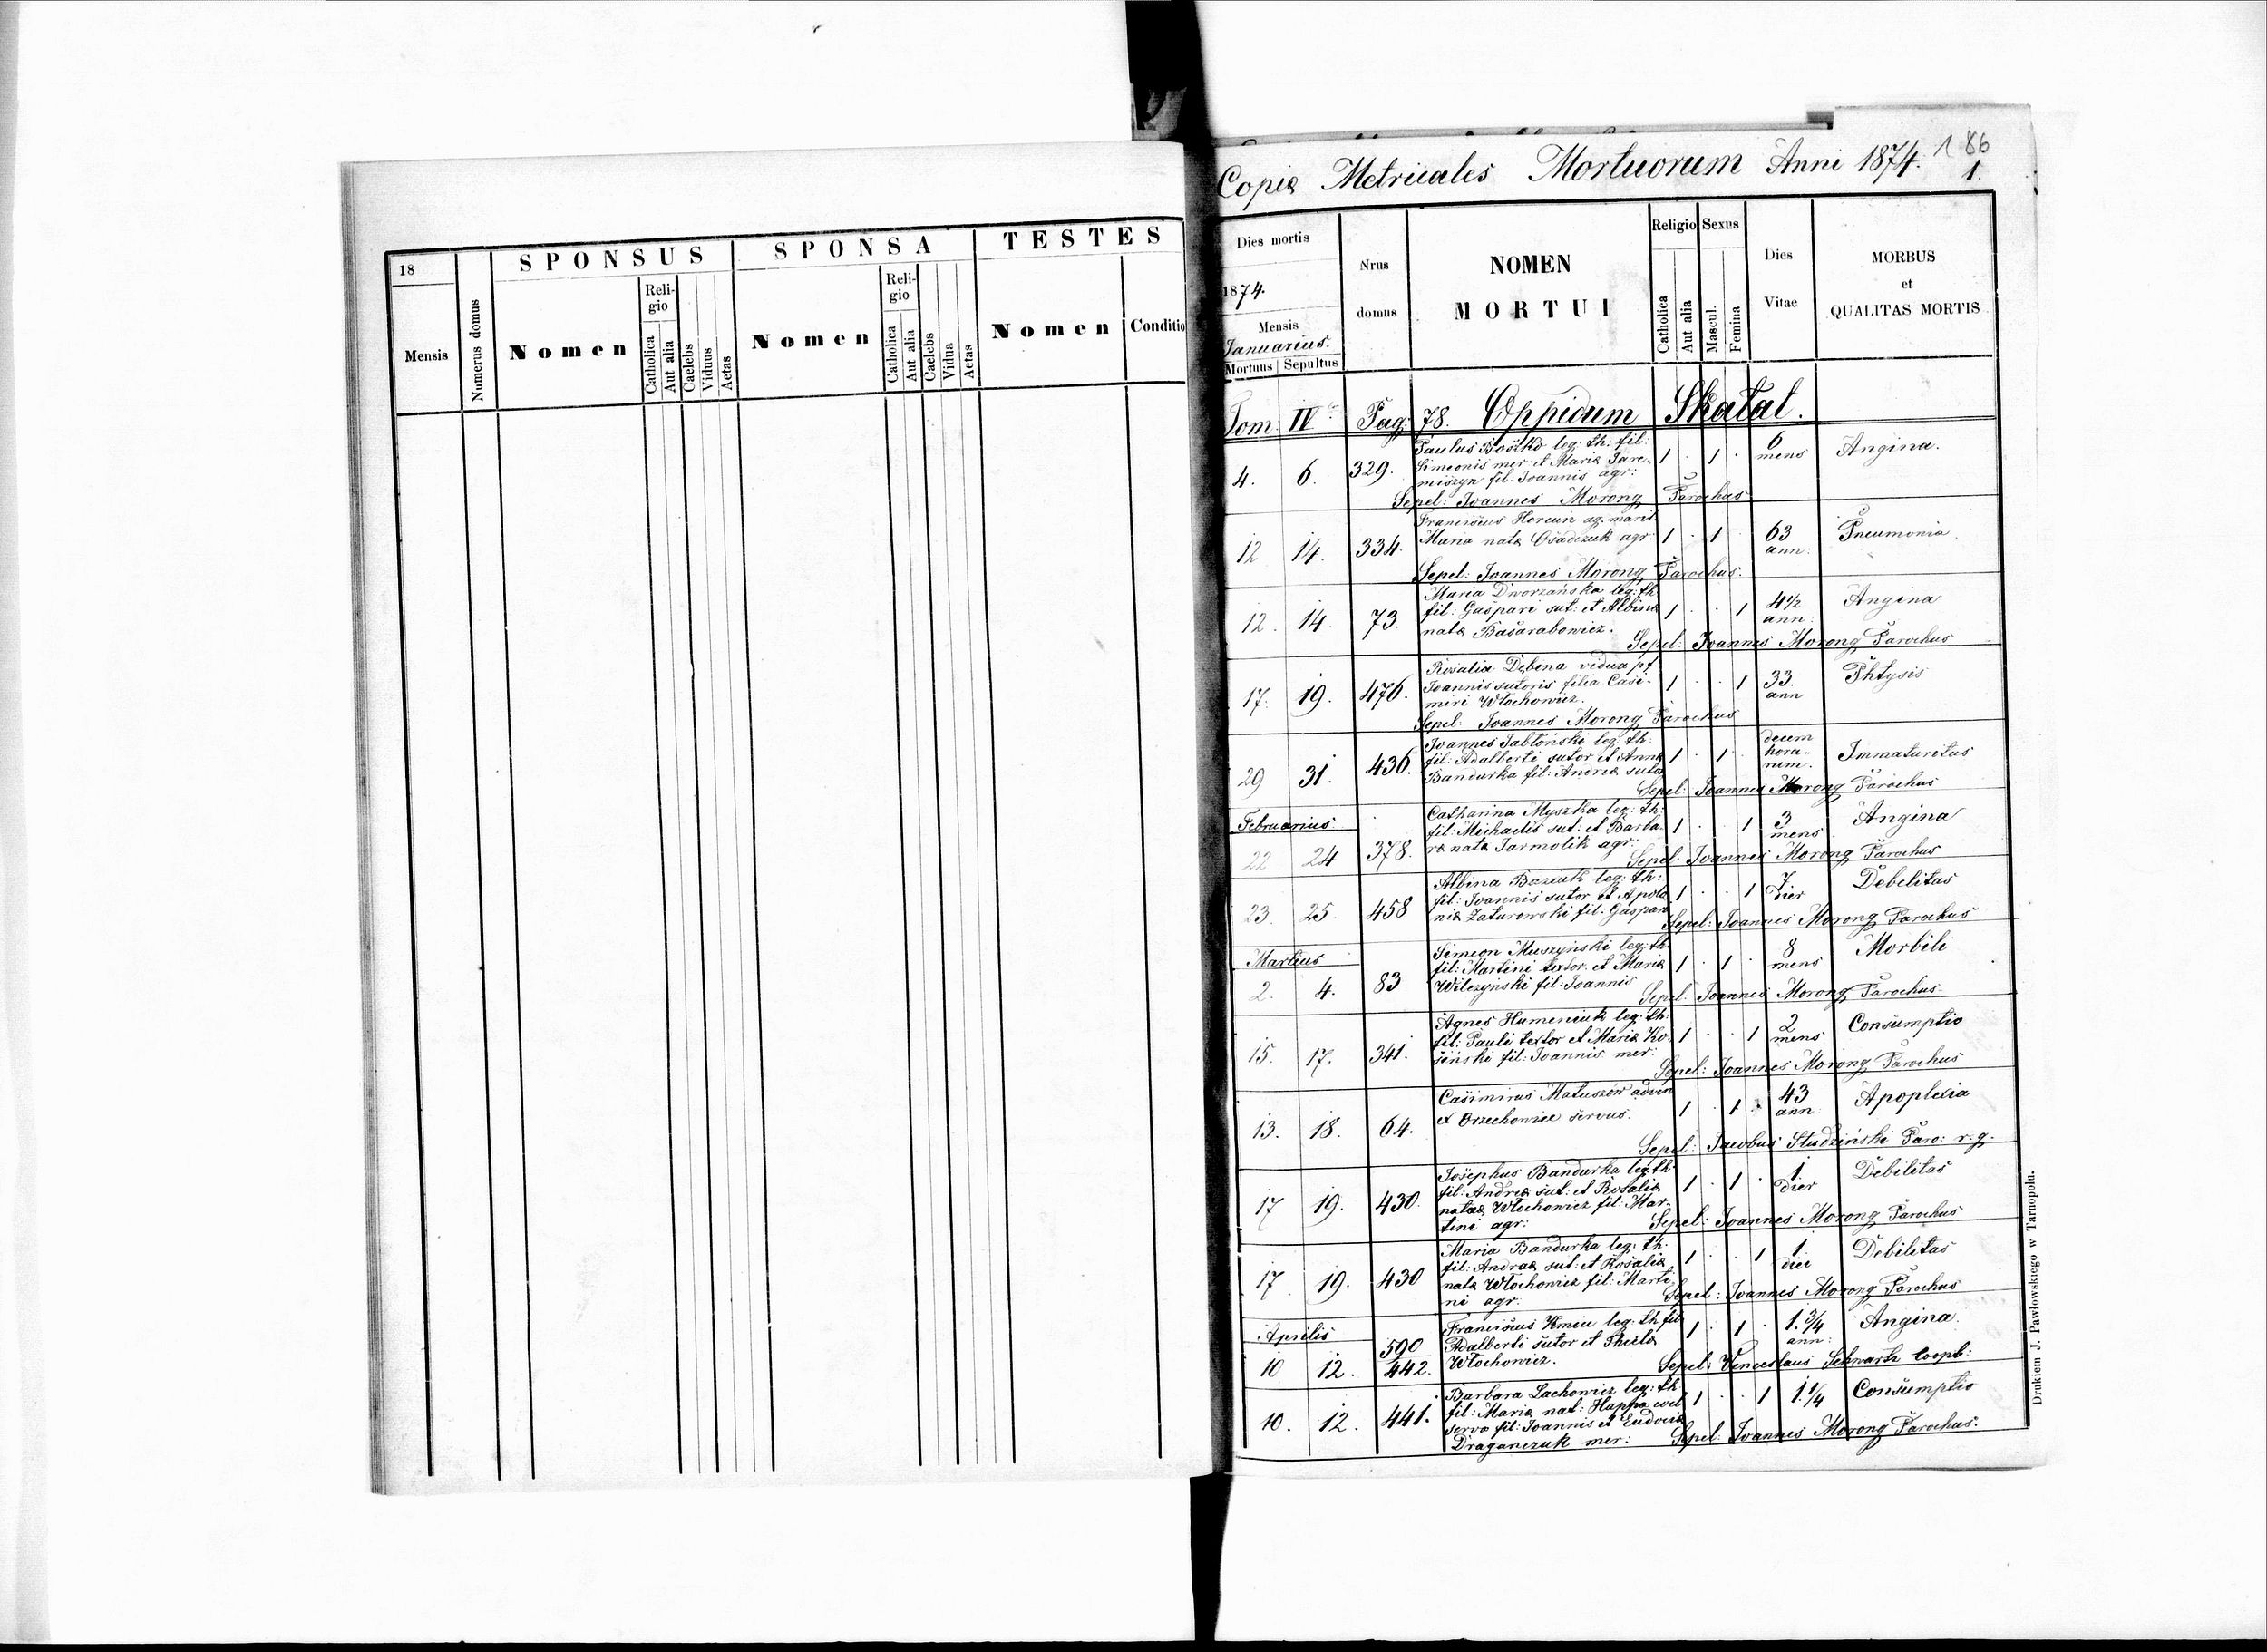 18
Mensis
Numerus domus
SPONSUS
Nomen
Religio
Catholica
Aut alia
Caelebs
Viduus
Aetas
SPONSA
Nomen
Religio
Catholica
Aut alia
Caelebs
Vidua
Aetas
TESTES
Nomen
Conditio
186
Copiæ Metricales Mortuorum Anni 1874. 1.
Dies mortis
1874.
Mensis
Januarius.
Mortuus | Sepultus
Nrus
domus
NOMEN
MORTUI
Religio
Catholica
Aut alia
Sexus
Mascul.
Femina
Dies
Vitae
MORBUS
et
QUALITAS MORTIS
Tom: IV Pag: 78. Oppidum Skałat.
4. 6. 329. Paulus Bożko leg: th: fil:
Simeonis mer: et Mariæ Jare-
miszyn fil: Joannis agr:
1 . 1 . 6 mens Angina.
Sepel: Joannes Morong Parochus
12 14. 334. Franciscus Horcun ag. marit.
Maria natæ Osadczuk agr:
1 . 1 . 63 ann: Pneumonia.
Sepel: Joannes Morong Parochus.
12. 14. 73. Maria Dworzańska leg: th
fil: Gaspari sut: et Albinæ
natæ Basarabowicz.
1 . . 1 4 1/2 ann: Angina
Sepel: Joannes Morong Parochus
17. 19. 476. Rosalia Dębena vidua pt
Joannis sutoris filia Casi-
miri Włochowicz.
1 . . 1 33. ann Phtysis
Sepel: Joannes Morong Parochus
29 31. 436. Joannes Jabłoński leg: th:
fil: Adalberti sutor et Annæ
Bandurka fil: Andreæ sutor
1 . 1 . decem hora-rum. Immaturitus
Sepel: Joannes Morong Parochus
Februarius
22 24 378. Catharina Myszka leg: th:
fil: Michaelis sut: et Barba-
ræ natæ Jarmolik agr:
1 . . 1 3 mens Angina
Sepel: Joannes Morong Parochus
23. 25. 458 Albina leg: th:
fil: Joannis sutor et Apolo
niæ Zaturowski fil: Gaspari
1 . . 1 7 dier Debelitas
Sepel: Joannes Morong Parochus
Martius
2. 4. 83 Simeon Muszyński leg: th
fil: Martini textor. et Mariæ
Wilczyński fil: Joannis
1 . 1 . 8 mens Morbili
Sepel: Joannes Morong Parochus
15. 17. 341. Agnes Humeniuk leg: th:
fil: Pauli textor et Mariæ Ko-
siński fil: Joannis mer:
1 . . 1 2 mens Consumptio
Sepel: Joannes Morong Parochus
13. 18. 64. Casimirus Matuszów advén
ex Orzechowiec servus.
1 . 1 . 43 ann: Apoplexia
Sepel: Jacobus Studziński Paro: r. g.
17 19. 430. Josephus Bandurka leg: th
fil: Andreæ sut: et Rosaliæ
natæ Włochowicz fil: Mar-
tini agr:
1 . 1 . 1 dier Debilitas
Sepel: Joannes Morong Parochus
17 19. 430 Maria Bandurka leg: th.
fil: Andreæ sut: et Rosaliæ
natæ Włochowicz fil: Marti
ni agr:
1 . . 1 1. diei Debilitas
Sepel: Joannes Morong Parochus
Aprilis
10 12. 590
442. Franciscus Kmiec leg: th fil
Adalberti sutor et Theclæ
Włochowicz.
1 . 1 . 1. 3/4 ann: Angina.
Sepel: Venceslaus Schwartz Coopt:
10. 12. 441. Barbara Lachowicz leg: th
fil: Mariæ nat: Happa
serva fil: Joannis et Eudociæ
Draganczuk mer:
1 . . 1 1. 1/4 Consumptio
Sepel: Joannes Morong Parochus.
Drukiem J. Pawłowskiego w Tarnopolu.